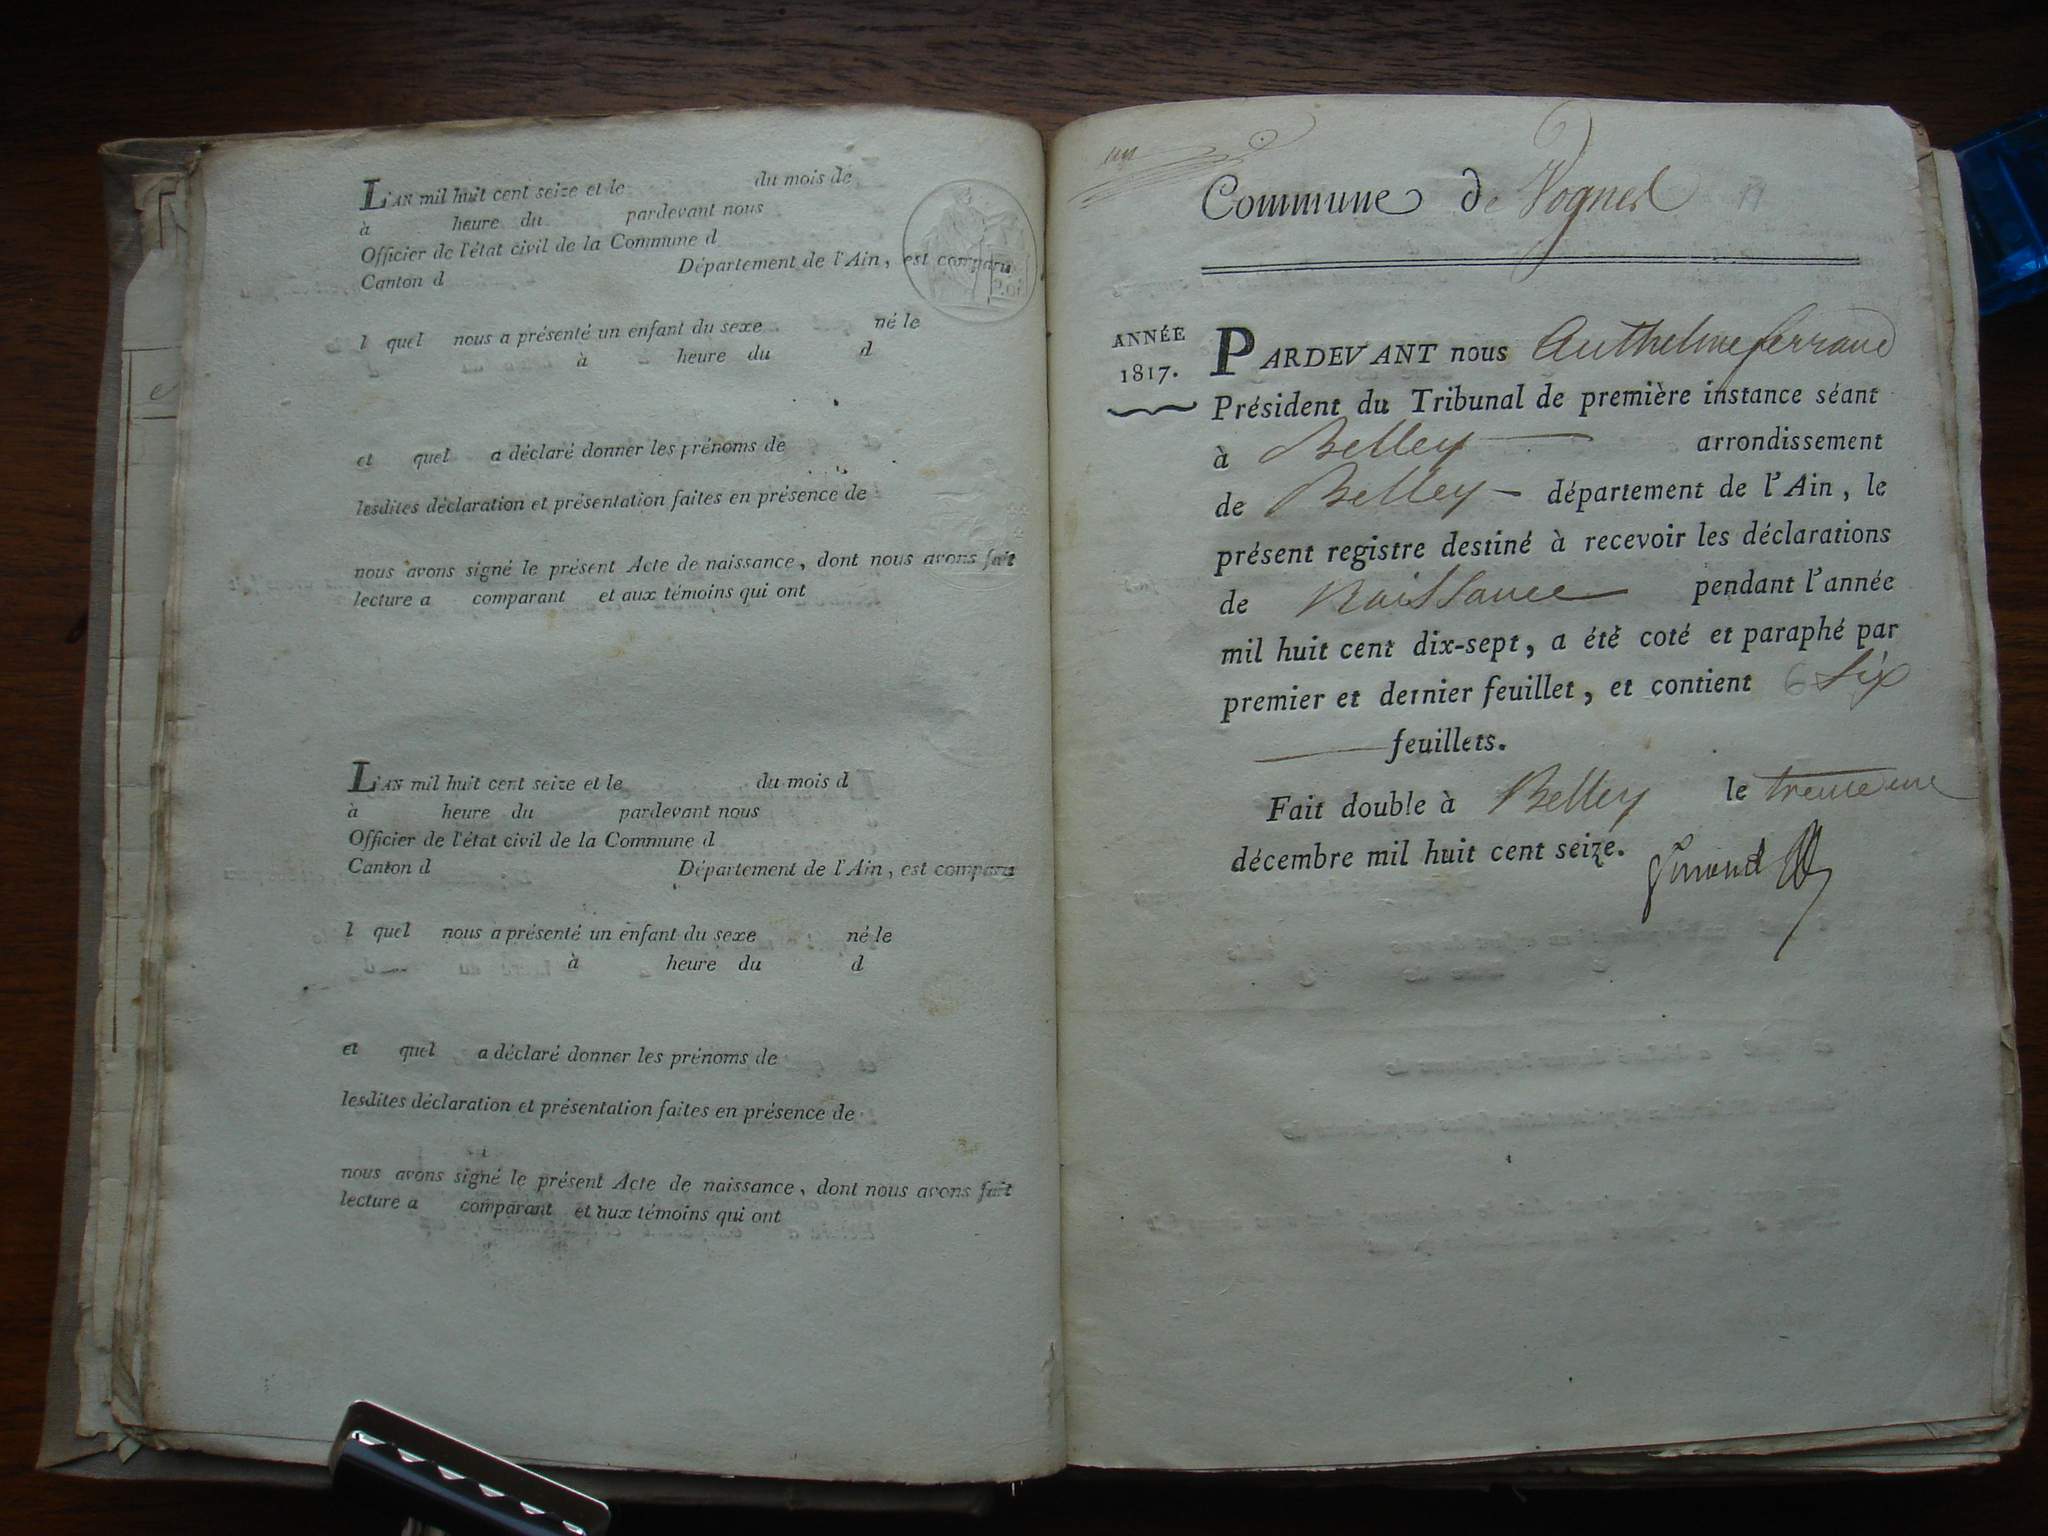 L'AN mil huit cent seize et le du mois de
à heure du pardevant nous
Officier de l'état civil de la Commune d
Canton d Département de l'Ain, est comparu
l quel nous a présenté un enfant du sexe né le
à heure du d
et quel a déclaré donner les prénoms de
lesdites déclaration et présentation faites en présence de
nous avons signé le présent Acte de naissance, dont nous avons fait
lecture a comparant et aux témoins qui ont
L'AN mil huit cent seize et le du mois d
à heure du pardevant nous
Officier de l'état civil de la Commune d
Canton d Département de l'Ain, est comparu
l quel nous a présenté un enfant du sexe né le
à heure du d
et quel a déclaré donner les prénoms de
lesdites déclaration et présentation faites en présence de
nous avons signé le présent Acte de naissance, dont nous avons fait
lecture a comparant et aux témoins qui ont
un
Commune de Vognes
ANNÉE
1817.
PARDEVANT nous Anthelme ferrand
Président du Tribunal de première instance séant
à Belley arrondissement
de Belley département de l'Ain, le
présent registre destiné à recevoir les déclarations
de Naissance pendant l'année
mil huit cent dix-sept, a été coté et paraphé par
premier et dernier feuillet, et contient 6 Six
feuillets.
Fait double à Belley le trente un
décembre mil huit cent seize.